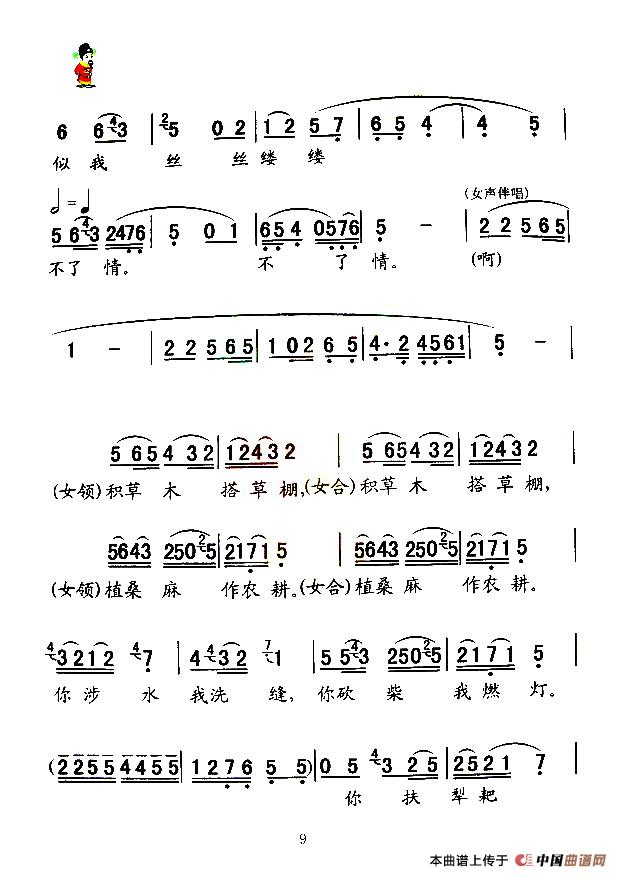 6 6 4 3 | 2 5 0 2 | 1 2 5 7 | 6 5 4 | 4 5 |
似我 丝 丝缕 缕
= 
5 6 4 3 2476 | 5 0 1 | 654 0576 | 5 - | 22 565 |
(女声伴唱)
不了 情。 不 了 情。 (啊)
1 - | 22 565 | 102 6 5 | 4· 2 4561 | 5 - |
5 654 432 | 12432 | 5 654 432 | 12432 |
(女领)积草 木 搭草棚,(女合)积草 木 搭草棚,
5643 250 2 5 | 2171 5 | 5643 250 2 5 | 2171 5 |
(女领)植桑 麻 作农耕。(女合)植桑 麻 作农耕。
4 3212 4 7 | 4 3 2 7 1 | 5 5 4 3 250 2 5 | 2171 5 |
你涉 水 我洗 缝, 你砍 柴 我燃 灯。
(2255 4455 | 1276 5 5) | 0 5 4 3 2 5 | 2521 7 |
你 扶 犁耙
9
本曲谱上传于 中国曲谱网